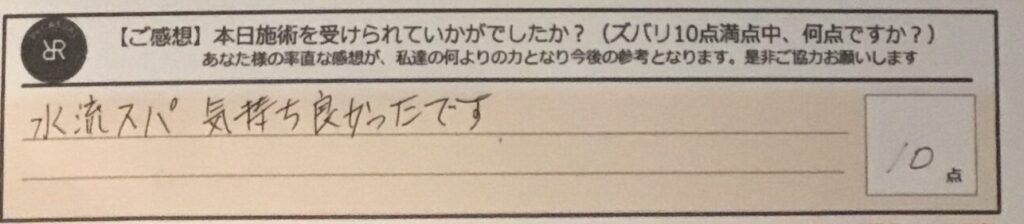 【ご感想】本日施術を受けられていかがでしたか？（ズバリ10点満点中、何点ですか？）
あなた様の率直な感想が、私達の何よりの力となり今後の参考となります。是非ご協力お願いします
水流スパ 気持ち良かったです
10点